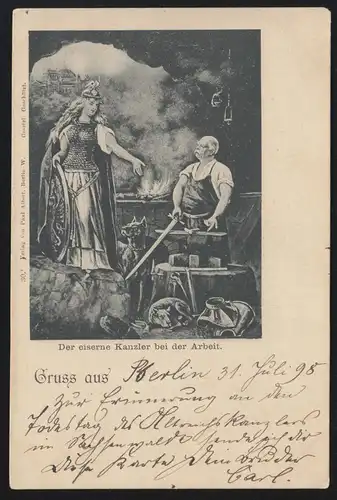 30.* Verlag von Paul Albert, Berlin W. Gesetzl. Geschützt.
Der eiserne Kanzler bei der Arbeit.
Gruss aus Berlin 31. Juli 98
Zur Erinnerung an den
Todestag des Altreichskanzlers
im Sachsenwalde sendet dir
diese Karte Dein Bruder
Carl.